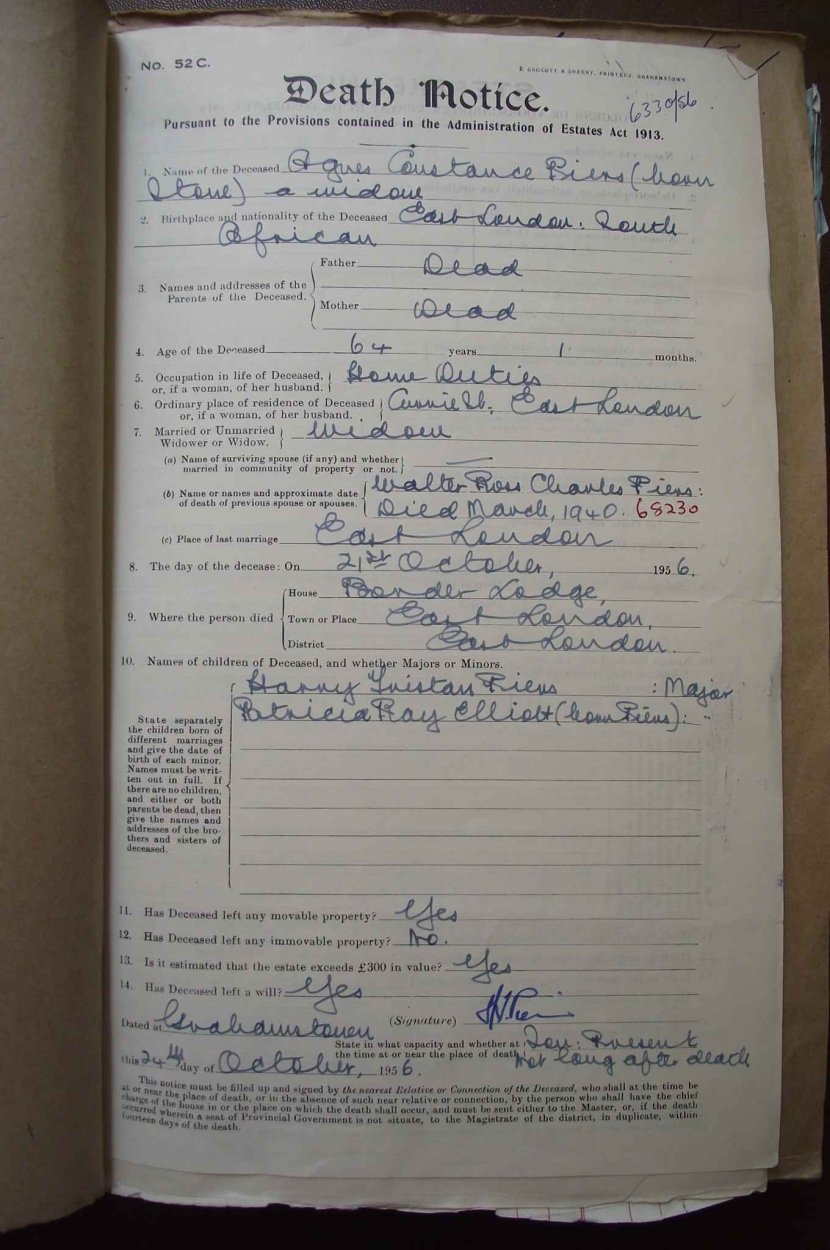 No. 52 C.
E CROCOTT & SHERRY, PRINTERS, GRAHAMSTOWN
Death Notice.
6330/56
Pursuant to the Provisions contained in the Administration of Estates Act 1913.
1. Name of the Deceased Agnes Constance Piers (born
Stone) a widow
2. Birthplace and nationality of the Deceased East London: South
African
3. Names and addresses of the Parents of the Deceased. Father Dead
Mother Dead
4. Age of the Deceased 64 years 1 months.
5. Occupation in life of Deceased, or, if a woman, of her husband. Home Duties
6. Ordinary place of residence of Deceased or, if a woman, of her husband. St. East London
7. Married or Unmarried Widower or Widow. Widow
(a) Name of surviving spouse (if any) and whether married in community of property or not. —
(b) Name or names and approximate date of death of previous spouse or spouses. Walter Ross Charles Piers:
Died March, 1940. 68230
(c) Place of last marriage East London
8. The day of the decease: On 21st October, 1956.
9. Where the person died House Border Lodge,
Town or Place East London,
District East London.
10. Names of children of Deceased, and whether Majors or Minors.
Harry Tristan Piers : Major
Patricia Ray Elliott (born Piers): "
State separately
the children born of
different marriages
and give the date of
birth of each minor.
Names must be writ-
ten out in full. If
there are no children,
and either or both
parents be dead, then
give the names and
addresses of the bro-
thers and sisters of
deceased.
11. Has Deceased left any movable property? Yes
12. Has Deceased left any immovable property? No.
13. Is it estimated that the estate exceeds £300 in value? Yes
14. Has Deceased left a will? Yes
Dated at Grahamstown (Signature)
State in what capacity and whether at the time at or near the place of death. Son: Present
not long after death
this 24th day of October, 1956.
This notice must be filled up and signed by the nearest Relative or Connection of the Deceased, who shall at the time be
at or near the place of death, or in the absence of such near relative or connection, by the person who shall have the chief
charge of the house in or the place on which the death shall occur, and must be sent either to the Master, or, if the death
occurred wherein a seat of Provincial Government is not situate, to the Magistrate of the district, in duplicate, within
fourteen days of the death.